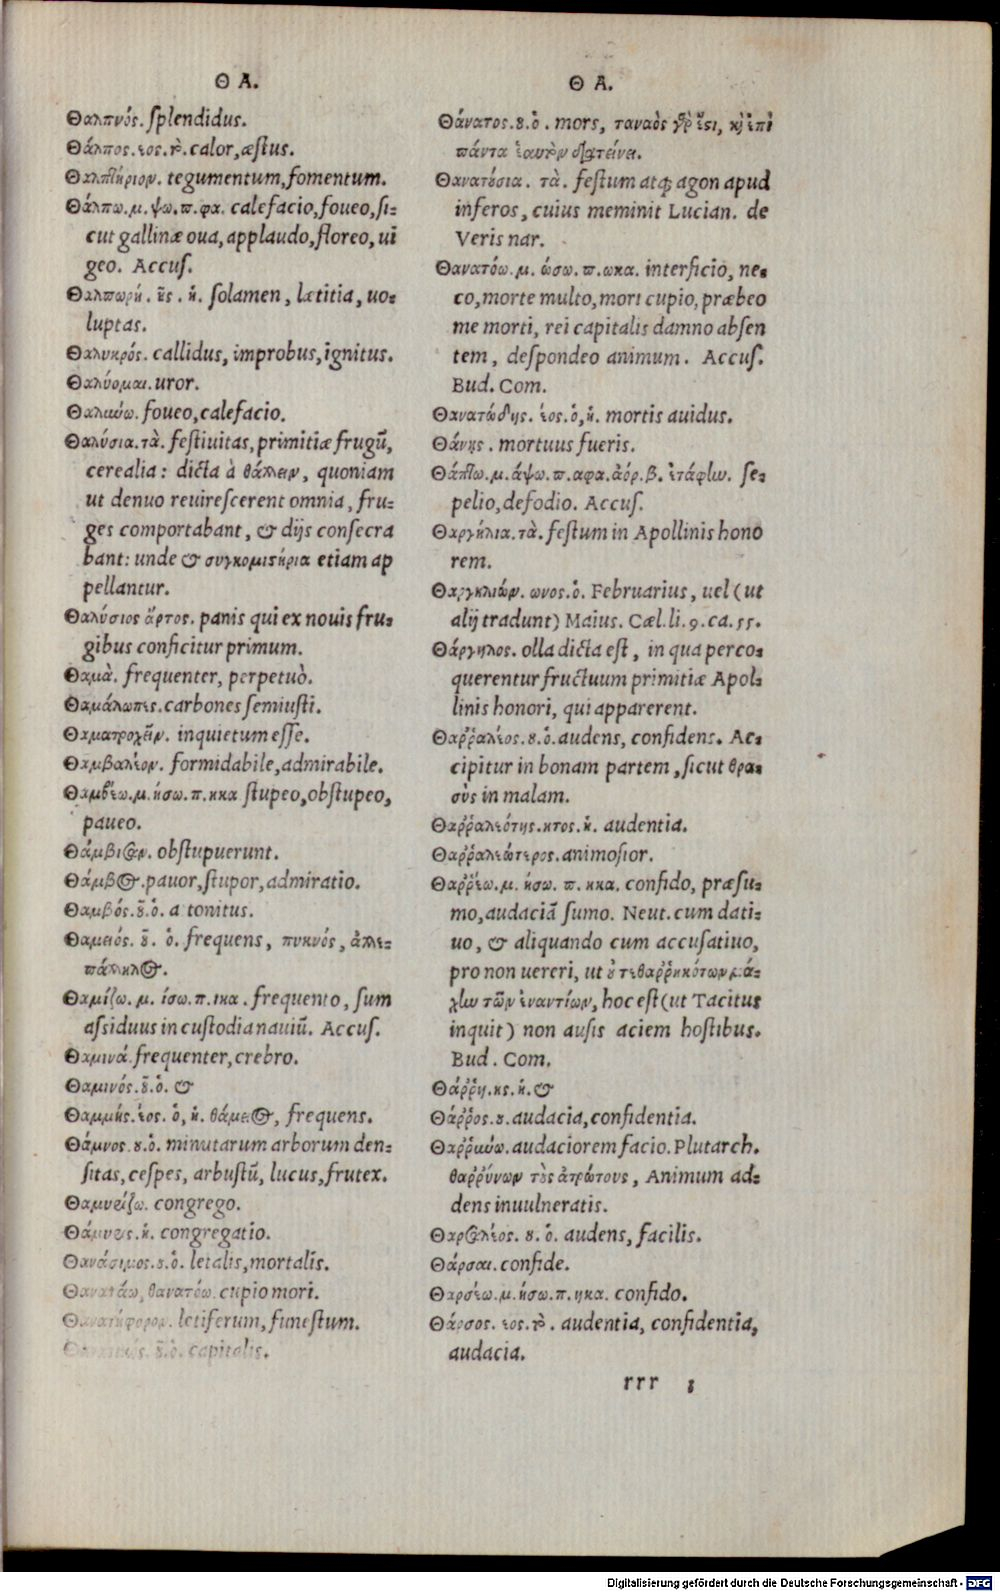 Θ Α.
Θαλπνός. splendidus.
Θάλπος. εος. τὸ. calor, æstus.
Θαλπτήριον. tegumentum, fomentum.
Θάλπω. μ. ψω. π. φα. calefacio, foueo, si-
cut gallinæ oua, applaudo, floreo, ui
geo. Accus.
Θαλπωρή. ῆς. ἡ. solamen, lætitia, uo-
luptas.
Θαλυκρός. callidus, improbus, ignitus.
Θαλύομαι. uror.
Θαλύω. foueo, calefacio.
Θαλύσια. τὰ. festiuitas, primitiæ frugũ,
cerealia: dicta à θάλλειν, quoniam
ut denuo reuirescerent omnia, fru-
ges comportabant, & dijs consecra
bant: unde & συγκομιστήρια etiam ap
pellantur.
Θαλύσιος ἄρτος. panis qui ex nouis fru-
gibus conficitur primum.
Θαμὰ. frequenter, perpetuò.
Θαμάλωπες. carbones semiusti.
Θαματροχεῖν. inquietum esse.
Θαμβαλέον. formidabile, admirabile.
Θαμβέω. μ. ήσω. π. ηκα stupeo, obstupeo,
paueo.
obstupuerunt.
Θάμβος. pauor, stupor, admiratio.
Θαμβός. οῦ. ὁ. a tonitus.
Θαμειός. οῦ. ὁ. frequens, πυκνός, ἀλλε-
πάλληλος.
Θαμίζω. μ. ίσω. π. ικα. frequento, sum
assiduus in custodia nauiũ. Accus.
Θαμινά. frequenter, crebro.
Θαμινός. οῦ. ὁ. &
Θαμμής. έος. ὁ, ἡ. θάμειος, frequens.
Θάμνος. ου. ὁ. minutarum arborum den-
sitas, cespes, arbustũ, lucus, frutex.
congrego.
ἡ. congregatio.
Θανάσιμος. ου. ὁ. letalis, mortalis.
Θανατάω, θανατόω. cupio mori.
Θανατήφορον. letiferum, funestum.
οῦ. ὁ. capitalis.
Θ Α.
Θάνατος. ου. ὁ. mors, ταναὸς γάρ ἐστι, καὶ ἐπὶ
πάντα ἑαυτὸν διατείνει.
Θανατούσια. τὰ. festum atq; agon apud
inferos, cuius meminit Lucian. de
Veris nar.
Θανατόω. μ. ώσω. π. ωκα. interficio, ne-
co, morte multo, mori cupio, præbeo
me morti, rei capitalis damno absen
tem, despondeo animum. Accus.
Bud. Com.
Θανατώδης. έος. ὁ, ἡ. mortis auidus.
Θάνῃς. mortuus fueris.
Θάπτω. μ. άψω. π. αφα. ἀόρ. β. ἐτάφην. se-
pelio, defodio. Accus.
Θαργήλια. τὰ. festum in Apollinis hono
rem.
Θαργηλιών. ωνος. ὁ. Februarius, uel (ut
alij tradunt) Maius. Cæl. li. 9. ca. 55.
Θάργηλος. olla dicta est, in qua perco-
querentur fructuum primitiæ Apol-
linis honori, qui apparerent.
Θαῤῥαλέος. ου. ὁ. audens, confidens. Ac-
cipitur in bonam partem, sicut θρα-
σὺς in malam.
Θαῤῥαλεότης. ητος. ἡ. audentia.
Θαῤῥαλεώτερος. animosior.
Θαῤῥέω. μ. ήσω. π. ηκα. confido, præsu-
mo, audaciã sumo. Neut. cum dati-
uo, & aliquando cum accusatiuo,
pro non uereri, ut οὐ τεθαῤῥηκότων μά-
χην τῶν ἐναντίων, hoc est (ut Tacitus
inquit) non ausis aciem hostibus.
Bud. Com.
Θάῤῥη. ης. ἡ. &
Θάῤῥος. ου. audacia, confidentia.
Θαῤῥύνω. audaciorem facio. Plutarch.
θαῤῥύνων τοὺς ἀτρώτους, Animum ad-
dens inuulneratis.
Θαρσαλέος. ου. ὁ. audens, facilis.
Θάρσαι. confide.
Θαρσέω. μ. ήσω. π. ηκα. confido.
Θάρσος. εος. τὸ. audentia, confidentia,
audacia.
rrr 1
Digitalisierung gefördert durch die Deutsche Forschungsgemeinschaft - DFG